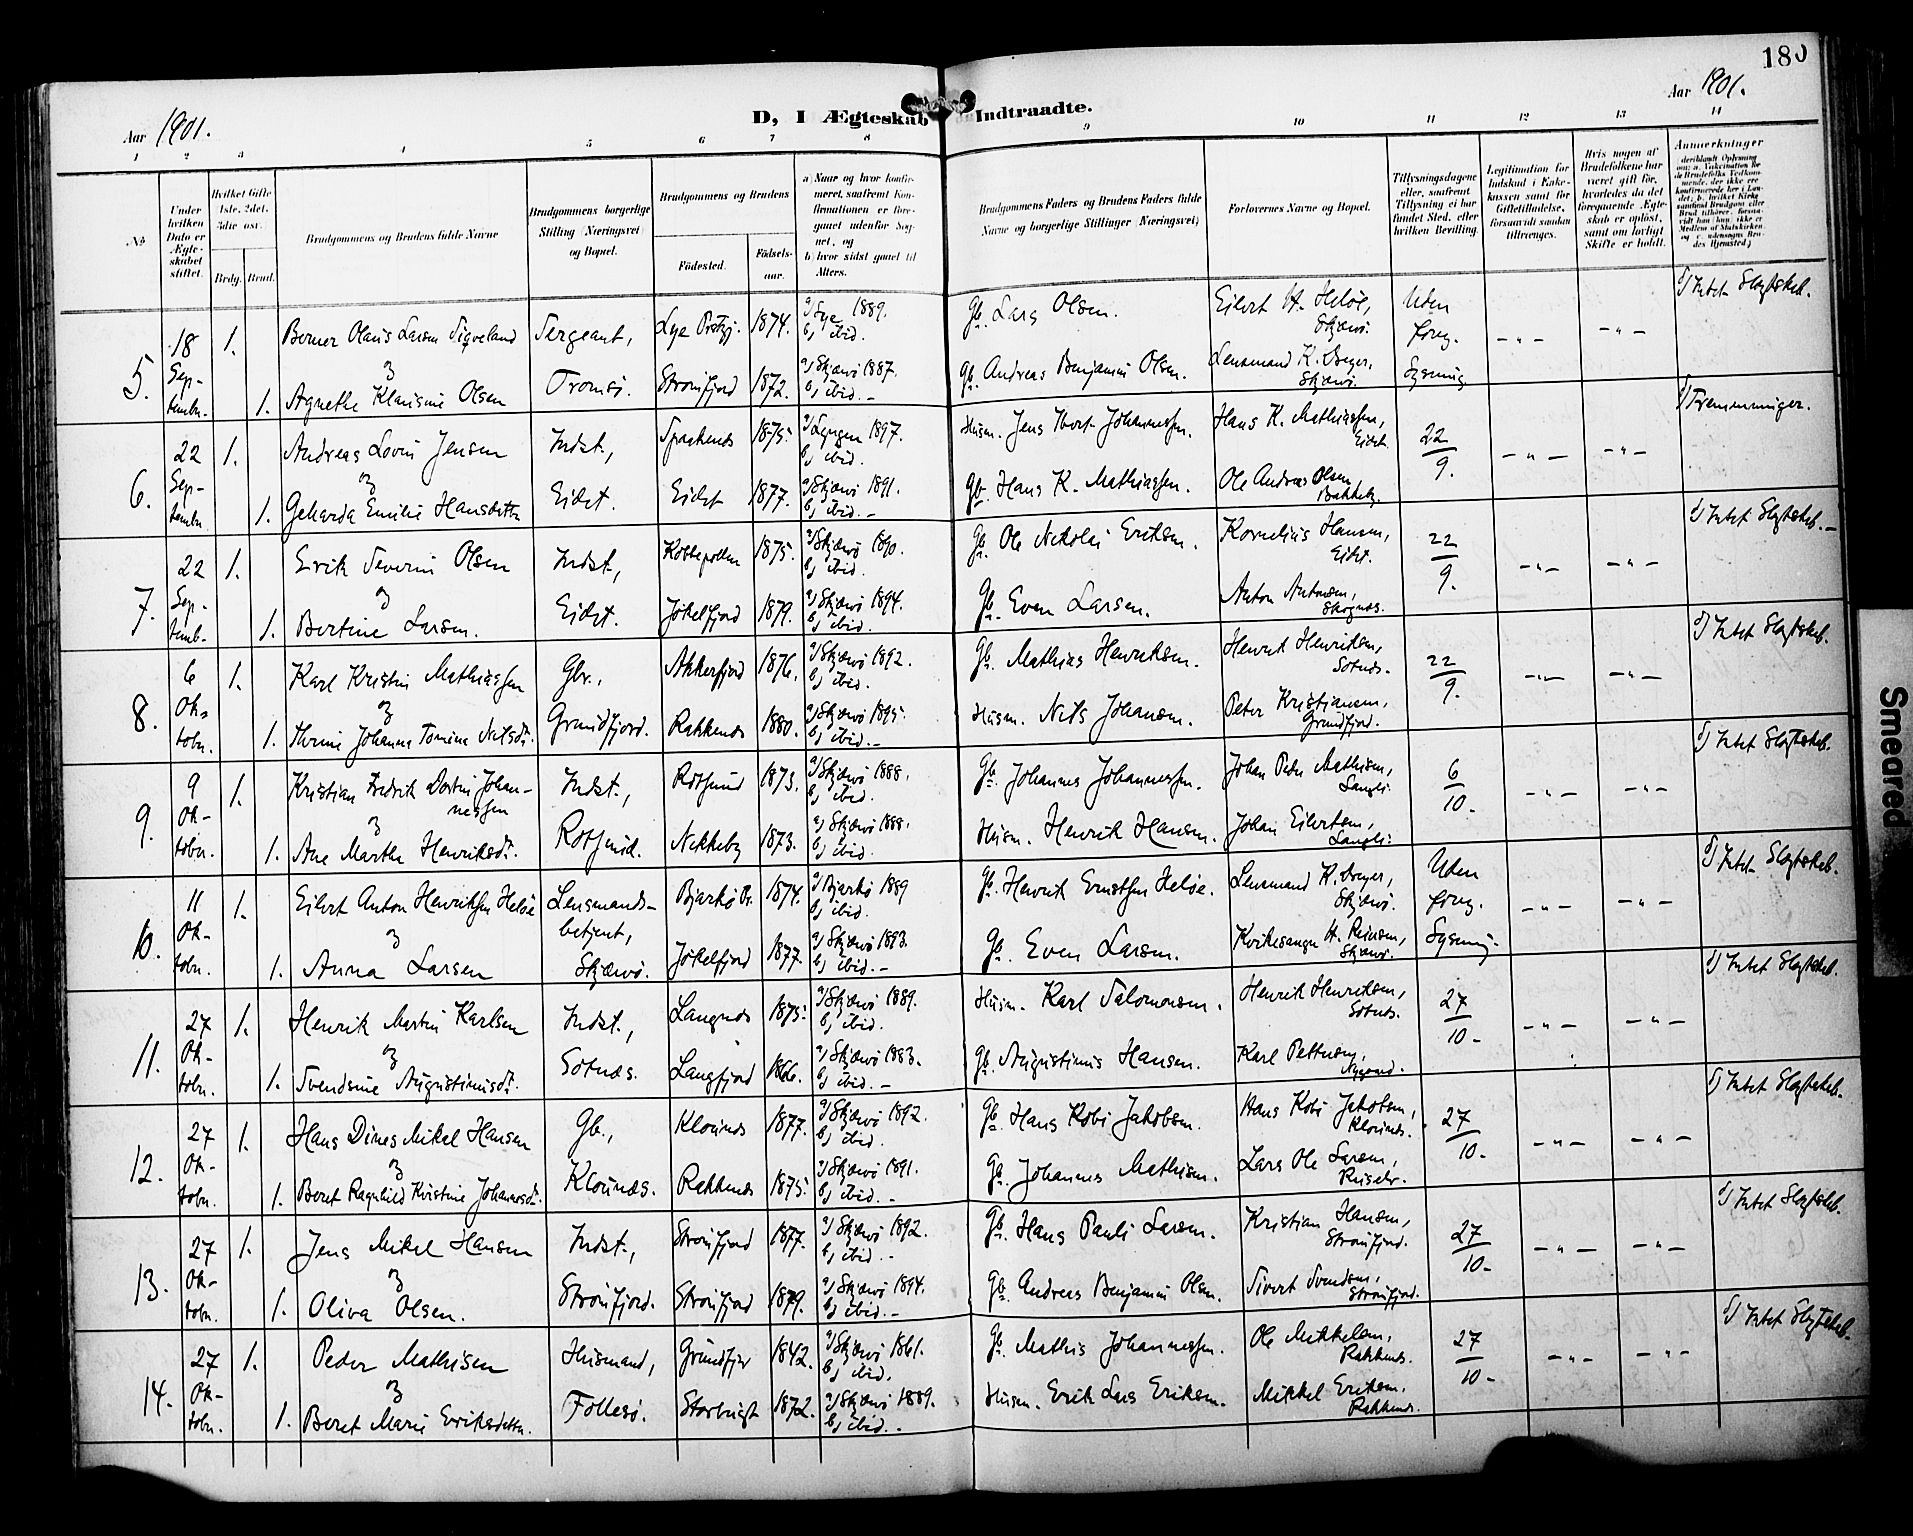 180
Aar 1901.
D, I Ægteskab Indtraadte.
Aar 1901.
1 2 3 4 5 6 7 8 9 10 11 12 13 14
No.
Under hvilken Dato er Ægteskabet stiftet.
Hvilket Gifte 1ste, 2det, 3die osv.
Brdg. Brud.
Brudgommens og Brudens fulde Navne
Brudgommens borgerlige Stilling (Næringsvei) og Bopæl.
Brudgommens og Brudens
Fødested.
Fødselsaar.
a) Naar og hvor konfirmeret, saafremt Konfirmationen er foregaaet udenfor Sognet, og
b) hvor sidst gaaet til Alters.
Brudgommens Faders og Brudens Faders fulde Navne og borgerlige Stillinger (Næringsvei)
Forlovernes Navne og Bopæl.
Tillysningsdagene eller, saafremt Tillysning ei har fundet Sted, efter hvilken Bevilling.
Legitimation for Indskud i Enkekassen samt for Giftetilladelse, forsaavidt saadan tiltrænges.
Hvis nogen af Brudefolkene har været gift før, hvorledes da det foregaaende Ægteskab er opløst, samt om lovligt Skifte er holdt.
Anmerkninger
5. 18 September. 1. Berner Olaus Larsen Sigveland Sergeant, Lye Prstgj. 1874. a) Lye 1889. b) ibid. Gb. Lars Olsen. Eilert H. Heløe, Skjærvø. Uden foreg. Lysning - " - - " - Intet Slægtskab.
& 1. Agnethe Klausine Olsen Tromsø. Straumfjord 1872. a) Skjærvø 1887. b) ibid. - Gb. Andreas Benjamin Olsen. Lensmand K. Dreyer, Skjærvø.
6. 22 September. 1. Andreas Lovin Jensen Indst., Spaakenes 1875. a) Lyngen 1897. b) ibid. Husm. Jens Thort Johannessen. Hans K. Mathiassen, Eidet. 22/9. - " - - " - Fremmninger.
& 1. Geharda Emilie Hansdatter Eidet. Eidet 1877. a) Skjærvø 1891. b) ibid. - Gb. Hans K. Mathiassen. Ole Andreas Olsen, Bakkeby.
7. 22 Septemb. 1. Erik Severin Olsen Indst., 1875. a) Skjærvø 1890. b) ibid. Gb. Ole Nikolai Eriksen. Kornelius Hansen, Eidet. 22/9. - " - - " - Intet Slægtskab. -
& 1. Bertine Larsen. Eidet. Jøkelfjord 1879. a) Skjærvø 1894. b) ibid. Gb. Even Larsen. Anton Antonsen, Skognæs.
8. 6 Oktober. 1. Karl Kristin Mathiassen Gbr., Akkerfjord 1876. a) Skjærvø 1892. b) ibid. Gb. Mathias Henriksen. Henrik Henriksen, Sotnæs. 22/9. - " - - " - Intet Slægtskab.
& 1. Johanne Tomine Nilsdt. Grundfjord. Rakkenes 1880. a) Skjærvø 1895. b) ibid. - Husm. Nils Johansen. Peter Kristiansen, Grundfjord.
9. 9 Oktober. 1. Kristian Fredrik Dortin Johannessen Indst., Rotsund 1873. a) Skjærvø 1888. b) ibid. Gb. Johannes Johannessen. Johan Peder Mathisen, Langli. 6/10. - " - - " - Intet Slægtskab.
& 1. Ane Marthe Henriksdt. Rotsund. Nikkeby 1873. a) Skjærvø 1888. b) ibid. Husm. Henrik Hansen. Johan Eilertsen, Langli.
10. 11 Oktober. 1. Eilert Anton Henriksen Heløe Lensmandsbetjent, Bjarkø Pr. 1874. a) Bjarkø 1889 b) ibid. Gb. Henrik Ernstsen Heløe. Lensmand K. Dreyer, Skjærvø. Uden foreg. Lysning. - " - - " - Intet Slægtskab.
& 1. Anna Larsen Skjærvø. Jøkelfjord 1877. a) Skjærvø 1893. b) ibid. - Gb. Even Larsen. Kirkesanger H. Reiersen, Skjærvø.
11. 27 Oktober. 1. Henrik Martin Karlsen Indst., Langnes 1875. a) Skjærvø 1889. b) ibid. Husm. Karl Salomonsen. Henrik Henriksen, Sotnæs. 27/10 - - " - - " - Intet Slægtskab.
& 1. Svendsine Augustinusdt. Sotnæs. Langfjord 1866. a) Skjærvø 1883. b) ibid. - Gb. Augustinus Hansen. Karl Pettersen,
12. 27 Oktober. 1. Hans Dines Mikal Hansen Gb., Klounes 1877. a) Skjærvø 1892. b) ibid. Gb. Hans Kobi Jakobsen. Hans Kobi Jakobsen, Klounes. 27/10 - - " - - " - Intet Slægtskab.
& 1. Beret Ragnhild Kristine Johannesdt. Klounæs. Rakkenes 1875. a) Skjærvø 1891. b) ibid. - Gb. Johannes Mathisen. Lars Ole Larsen,
13. 27 Oktober. 1. Jens Mikal Hansen Indst., Straumfjord 1877. a) Skjærvø 1892. b) ibid. - Gb. Hans Pauli Larsen. Kristian Hansen, Straumfjord. 27/10 - - " - - " - Intet Slægtskab.
& 1. Oliva Olsen. Straumfjord. Straumfjord 1879. a) Skjærvø 1894. b) ibid. - Gb. Andreas Benjamin Olsen. Sivert Svendsen, Straumfjord.
14. 27 Oktober. 1. Peder Mathisen Husmand, Grundfjor 1842. a) Skjærvø 1861. b) ibid. Gb. Mathis Johannessen. Ole Mikkelsen, Rakkenes. 27/10 - - " - - " - Intet Slægtskab.
& 1. Beret Marie Eriksdatter. Follesø. Storbugt 1872. a) Skjærvø 1889. b) ibid. - Husm. Erik Lars Eriksen. Mikkel Eriksen, Rakkenes.
Smeared